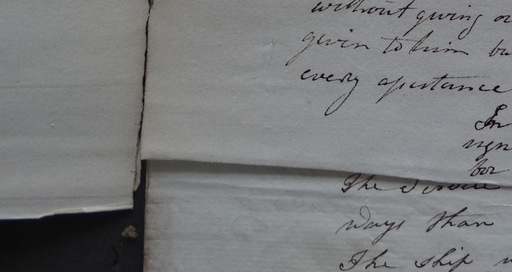 without giving or
given to him bu
every assistance
In
sign
for
The Service
ways than
The ship